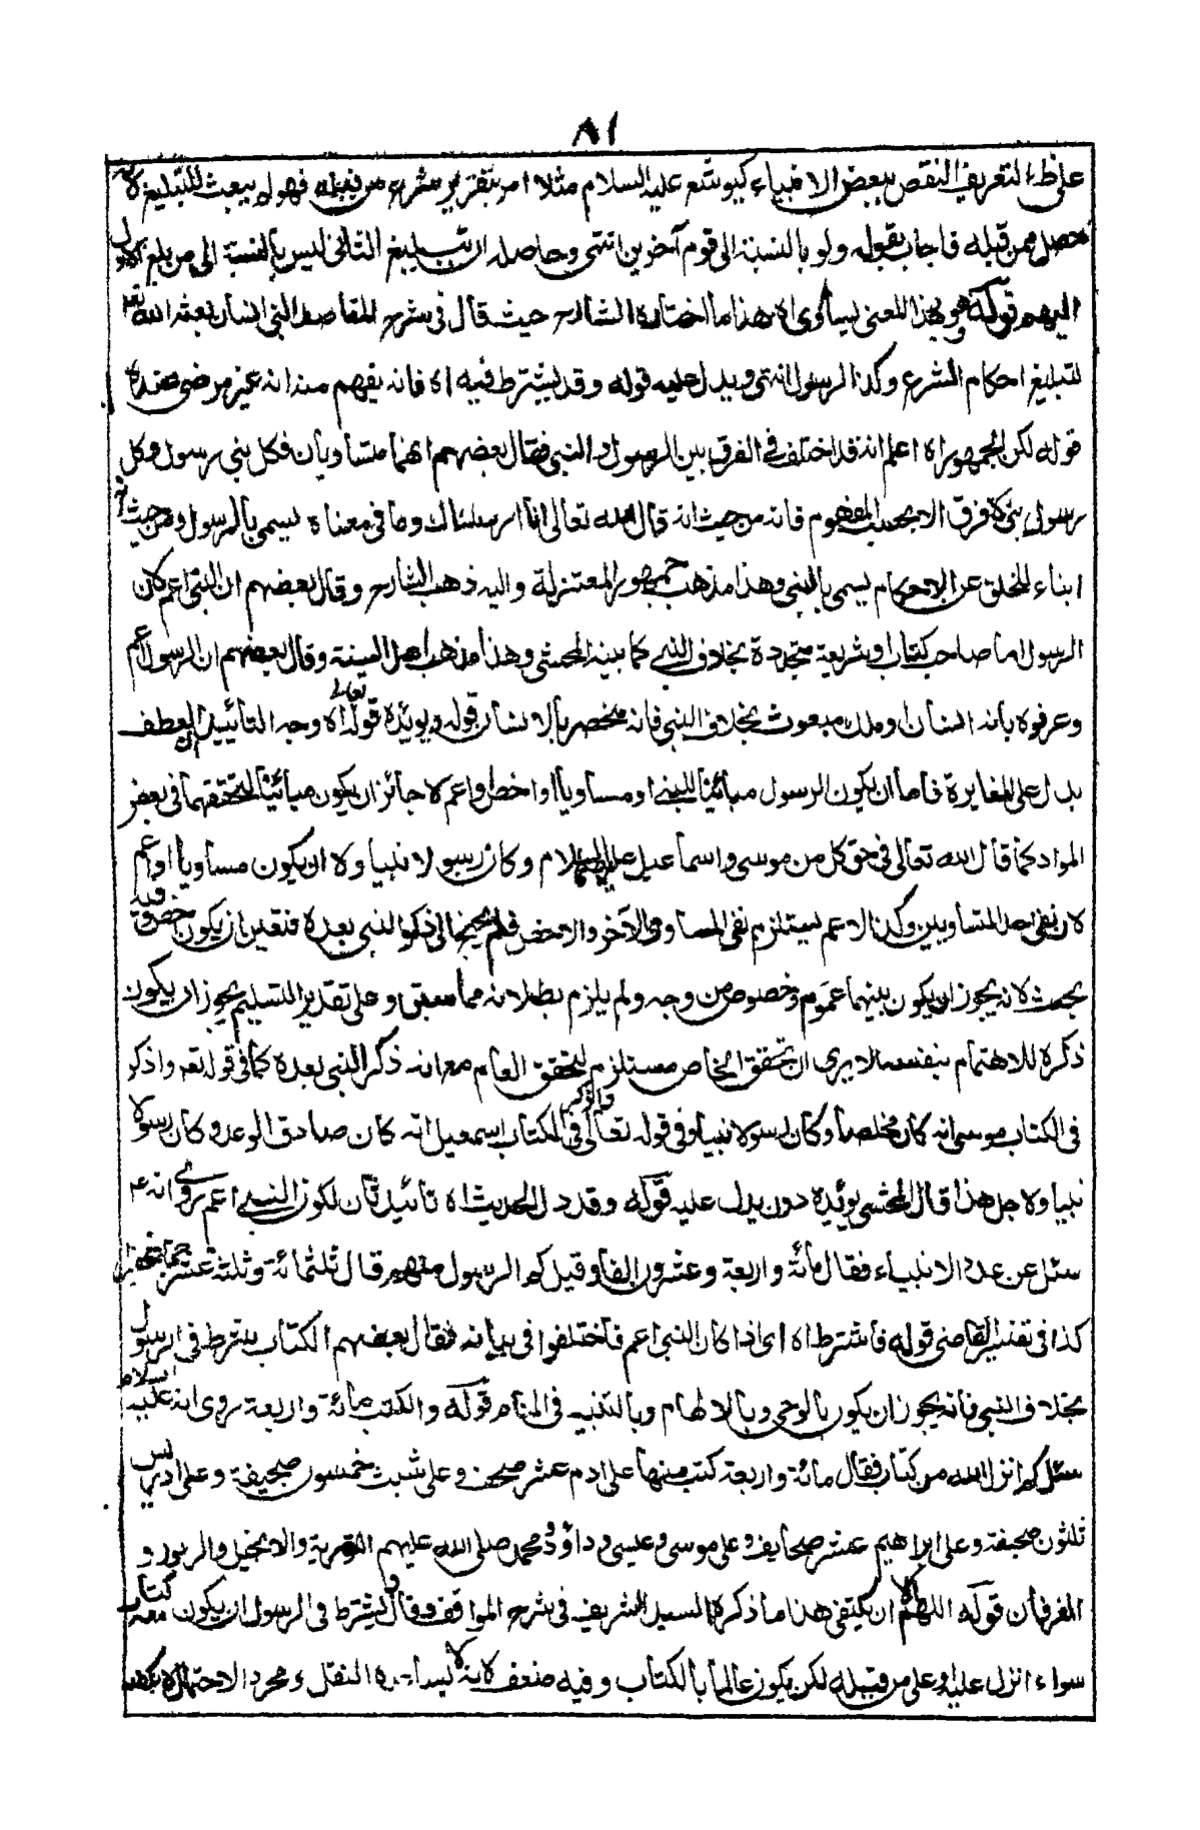 ٨١
على ظاهر التعريف النقص ببعض الانبياء كيوشع عليه السلام مثلا امر بتقرير شرع من قبله فهو لم يبعث للتبليغ لانه
حصل ممن قبله فاجاب بقوله ولو بالنسبة الى قوم آخرين انتهى وحاصله ان تبليغ الثانى ليس بالنسبة الى من بلغ الاول
اليهم قوله وهو بهذا المعنى يساوى اه هذا ما اختاره الشارح حيث قال فى شرح المقاصد النبى انسان بعثه الله تعه
لتبليغ احكام الشرع وكذا الرسول انتهى ويدل عليه قوله وقد يشترط فيه اه فانه يفهم منه انه غير مرضى عنده
قوله لكن الجمهور اه اعلم انه قد اختلف فى الفرق بين الرسول والنبى فقال بعضهم انهما متساويان فكل نبى رسول وكل
رسول نبى لا فرق الا بحسب المفهوم فانه من حيث انه قال الله تعالى انا ارسلناك وما فى معناه يسمى بالرسول ومن حيث انه
انباء للخلق عن الاحكام يسمى بالنبى وهذا مذهب جمهور المعتزلة واليه ذهب الشارح وقال بعضهم ان النبى اعم لان
الرسول اما صاحب كتاب او شريعة متجددة بخلاف النبى كما بينه المحشى وهذا مذهب اهل السنة وقال بعضهم ان الرسول اعم
وعرفوه بانه انسان او ملك مبعوث بخلاف النبى فانه مختص بالانسان قوله ويؤيده قوله تعالى اه وجه التأييد ان العطف
يدل على المغايرة فاما ان يكون الرسول مبائنا للنبى او مساويا او اخص او اعم لا جائز ان يكون مبائنا لتحققهما فى بعض
المواد كما قال الله تعالى فى حق كل من موسى واسماعيل عليهما السلام وكان رسولا نبيا ولا ان يكون مساويا او اعم
لان نفى احد المتساويين وكذا الاعم يستلزم نفى المساوى الآخر والاخص فلم يحتج الى ذكر النبى بعده فتعين ان يكون اخص وفيه
بحث لانه يجوز ان يكون بينهما عموم وخصوص من وجه ولم يلزم بطلانه مما سبق وعلى تقدير التسليم يجوز ان يكون
ذكره للاهتمام بنفسه الا يرى ان تحقق الخاص مستلزم لتحقق العام مع انه ذكر النبى بعده كما فى قوله تعه واذكر
فى الكتاب موسى انه كان مخلصا وكان رسولا نبيا وفى قوله تعالى واذكر فى الكتاب اسمعيل انه كان صادق الوعد وكان رسولا
نبيا ولاجل هذا قال المحشى يؤيده دون يدل عليه قوله وقد دل الحديث اه تائيد ثان لكون النبى اعم روى انه ع
سئل عن عدد الانبياء فقال مائة واربعة وعشرون الفا وقيل كم الرسول منهم قال ثلثمائة وثلثة عشر جما غفيرا
كذا فى تفسير القاضى قوله فاشترط اه اى اذا كان النبى اعم فاختلفوا فى بيانه فقال بعضهم الكتاب يشترط فى الرسول
بخلاف النبى فانه يجوز ان يكون بالوحى وبالالهام وبالتنبيه فى المنام قوله والكتب مائة واربعة روى انه عليه السلام
سئل كم انزل الله من كتاب فقال مائة واربعة كتب منها على ادم عشر صحف وعلى شيث خمسون صحيفة وعلى ادريس
ثلثون صحيفة وعلى ابراهيم عشر صحايف وعلى موسى وعيسى وداؤد ومحمد صلى الله عليهم التورية والانجيل والزبور و
الفرقان قوله اللهم الا ان يكتفى هذا ما ذكره السيد الشريف فى شرح المواقف وقال ويشترط فى الرسول ان يكون معه كتاب
سواء انزل عليه او على من قبله لكن يكون عالما بالكتاب وفيه ضعف لانه لا يساعده النقل ومجرد الاحتمال لا يكفيه